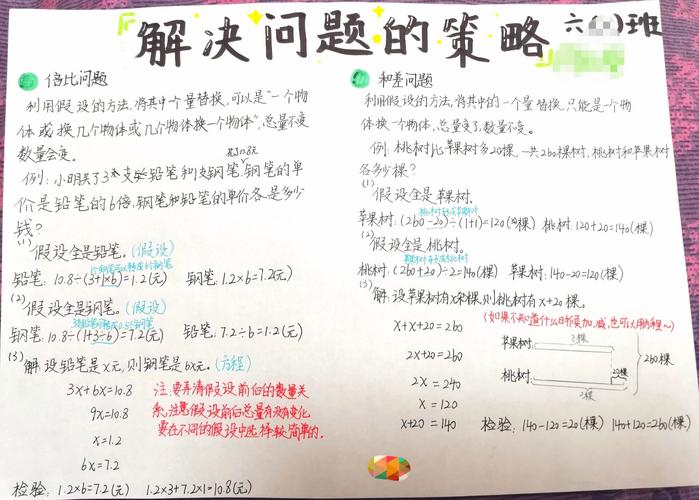 解决问题的策略 六 班
倍比问题
利用假设的方法,将其中一个量替换,可以是“一个物
体或换几个物体或几个物体换一个物体”,总量不变
数量会变。
花了10.8元
例:小明买了3支铅笔和1支钢笔,钢笔的单
价是铅笔的6倍,钢笔和铅笔的单价各是多少
钱?
(1)假设全是铅笔。(假设)
铅笔:10.8÷(3+1×6)=1.2(元) 钢笔:1.2×6=7.2(元)
(2)假设全是钢笔。(假设)
钢笔:10.8÷(1+3÷6)=7.2(元) 铅笔:7.2÷6=1.2(元)
(3)解:设铅笔是x元,则钢笔是6x元。(方程)
3x+6x=10.8
9x=10.8
x=1.2
6x=7.2
注:要弄清假设前后的数量关
系,注意假设前后总量有没有变化
要在不同的假设中选择较简单的.
检验:1.2×6=7.2(元) 1.2×3+7.2×1=10.8(元)
和差问题
利用假设的方法,将其中的一个量替换,只能是一个物
体换一个物体,总量变了,数量不变。
例:桃树比苹果树多20棵,一共260棵树,桃树和苹果树
各多少棵?
(1)假设全是苹果树.
苹果树:(260-20)÷(1+1)=120(棵) 桃树:120+20=140(棵)
(2)假设全是桃树.
桃树:(260+20)÷2=140(棵) 苹果树:140-20=120(棵)
(3)解:设苹果树有x棵,则桃树有x+20棵。
x+x+20=260
2x+20=260
2x=240
x=120
x+20=140
(如果不知道什么时候加、减,也可以用方程~)
苹果树: ?棵
桃树: 20棵 260棵
?棵
检验:140-120=20(棵) 140+120=260(棵)